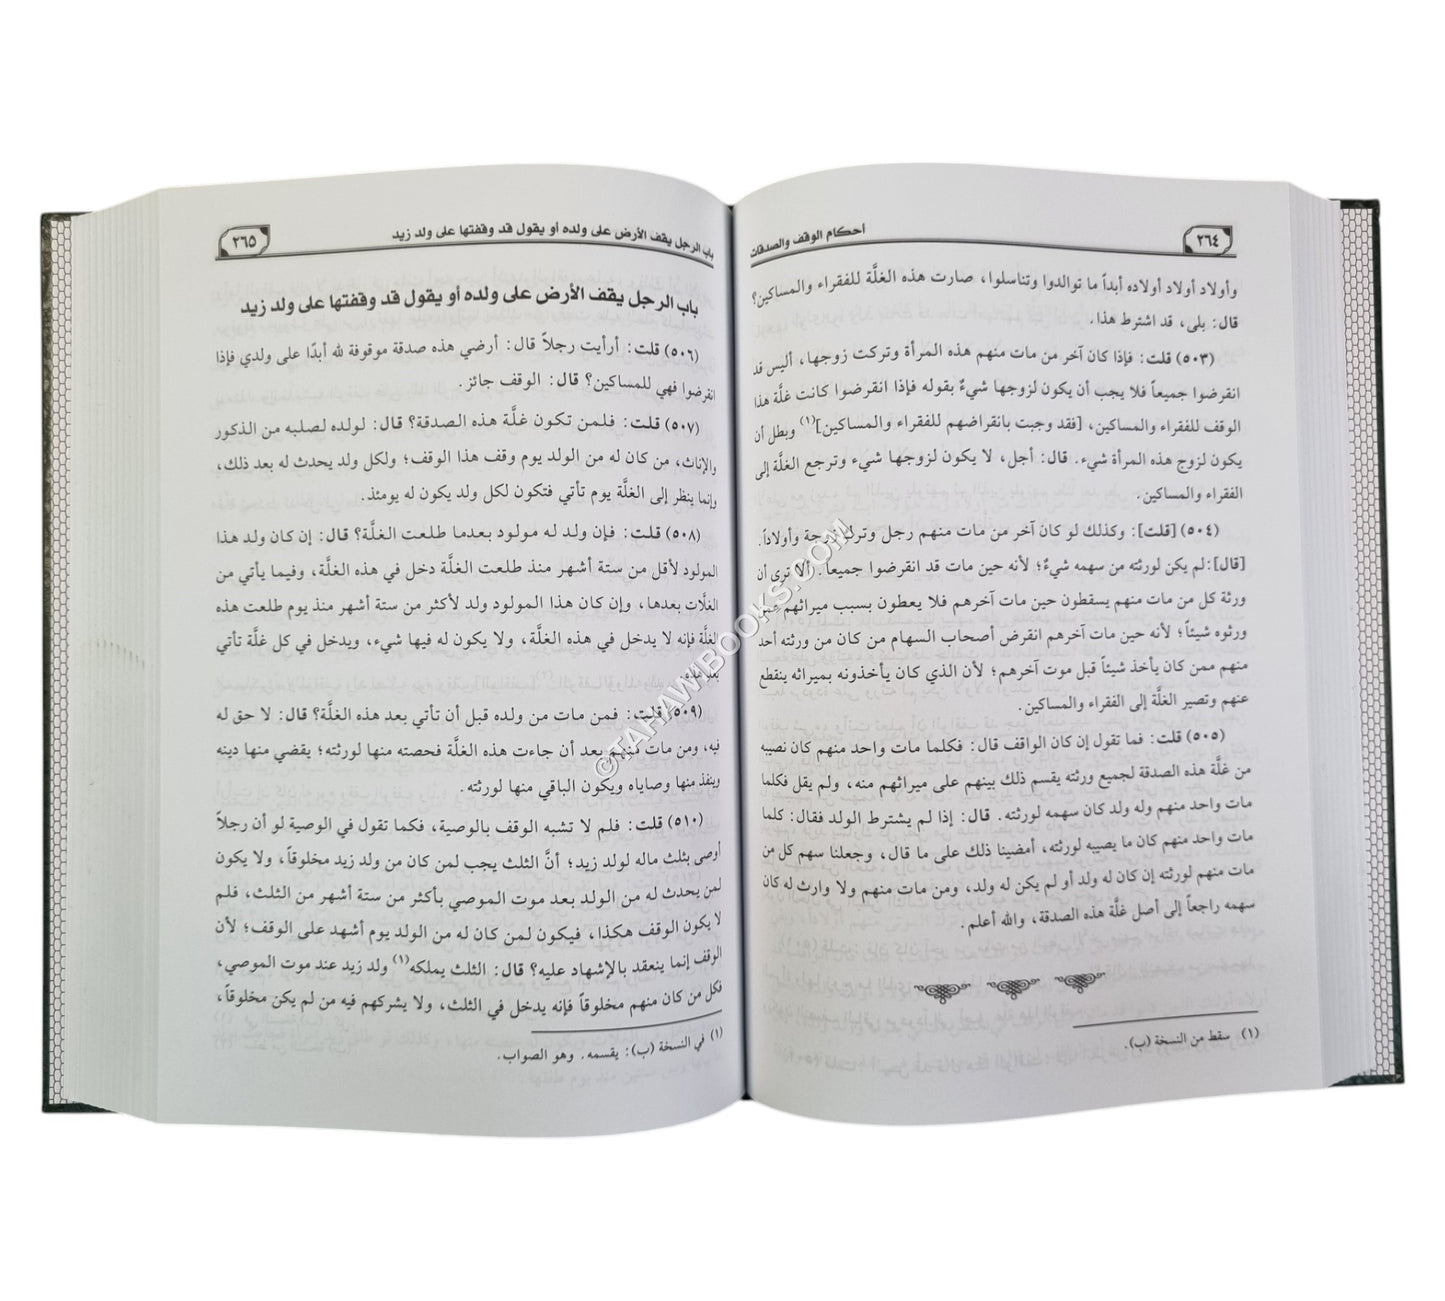 ٢٦٤
أحكام الوقف والصدقات
وأولاد أولاد أولاده أبداً ما توالدوا وتناسلوا، صارت هذه الغلَّة للفقراء والمساكين؟
قال: بلى، قد اشترط هذا.
(٥٠٣) قلت: فإذا كان آخر من مات منهم هذه المرأة وتركت زوجها، أليس قد
انقرضوا جميعاً فلا يجب أن يكون لزوجها شيءٌ بقوله فإذا انقرضوا كانت غلَّة هذا
الوقف للفقراء والمساكين، [فقد وجبت بانقراضهم للفقراء والمساكين](١) وبطل أن
يكون لزوج هذه المرأة شيء. قال: أجل، لا يكون لزوجها شيء وترجع الغلَّة إلى
الفقراء والمساكين.
(٥٠٤) [قلت]: وكذلك لو كان آخر من مات منهم رجل وترك زوجة وأولاداً.
[قال]: لم يكن لورثته من سهمه شيءٌ؛ لأنه حين مات قد انقرضوا جميعاً. ألا ترى أن
ورثة كل من مات منهم يسقطون حين مات آخرهم فلا يعطون بسبب ميراثهم ممن
ورثوه شيئاً؛ لأنه حين مات آخرهم انقرض أصحاب السهام من كان من ورثته أحد
منهم ممن كان يأخذ شيئاً قبل موت آخرهم؛ لأن الذي كان يأخذونه بميراثه ينقطع
عنهم وتصير الغلَّة إلى الفقراء والمساكين.
(٥٠٥) قلت: فما تقول إن كان الواقف قال: فكلما مات واحد منهم كان نصيبه
من غلَّة هذه الصدقة لجميع ورثته يقسم ذلك بينهم على ميراثهم منه، ولم يقل فكلما
مات واحد منهم وله ولد كان سهمه لورثته. قال: إذا لم يشترط الولد فقال: كلما
مات واحد منهم كان ما يصيبه لورثته، أمضينا ذلك على ما قال، وجعلنا سهم كل من
مات منهم لورثته إن كان له ولد أو لم يكن له ولد، ومن مات منهم ولا وارث له كان
سهمه راجعاً إلى أصل غلَّة هذه الصدقة، والله أعلم.
(١) سقط من النسخة (ب).
باب الرجل يقف الأرض على ولده أو يقول قد وقفتها على ولد زيد
٢٦٥
باب الرجل يقف الأرض على ولده أو يقول قد وقفتها على ولد زيد
(٥٠٦) قلت: أرأيت رجلاً قال: أرضي هذه صدقة موقوفة لله أبدًا على ولدي فإذا
انقرضوا فهي للمساكين؟ قال: الوقف جائز.
(٥٠٧) قلت: فلمن تكون غلَّة هذه الصدقة؟ قال: لولده لصلبه من الذكور
والإناث، من كان له من الولد يوم وقف هذا الوقف؛ ولكل ولد يحدث له بعد ذلك،
وإنما ينظر إلى الغلَّة يوم تأتي فتكون لكل ولد يكون له يومئذ.
(٥٠٨) قلت: فإن ولد له مولود بعدما طلعت الغلَّة؟ قال: إن كان ولد هذا
المولود لأقل من ستة أشهر منذ طلعت الغلَّة دخل في هذه الغلَّة، وفيما يأتي من
الغلَّات بعدها، وإن كان هذا المولود ولد لأكثر من ستة أشهر منذ يوم طلعت هذه
الغلَّة فإنه لا يدخل في هذه الغلَّة، ولا يكون له فيها شيء، ويدخل في كل غلَّة تأتي
بعد هذه.
(٥٠٩) قلت: فمن مات من ولده قبل أن تأتي بعد هذه الغلَّة؟ قال: لا حق له
فيه، ومن مات منهم بعد أن جاءت هذه الغلَّة فحصته منها لورثته؛ يقضي منها دينه
وينفذ منها وصاياه ويكون الباقي منها لورثته.
(٥١٠) قلت: فلم لا تشبه الوقف بالوصية، فكما تقول في الوصية لو أن رجلاً
أوصى بثلث ماله لولد زيد؛ أنَّ الثلث يجب لمن كان من ولد زيد مخلوقاً، ولا يكون
لمن يحدث له من الولد بعد موت الموصي بأكثر من ستة أشهر من الثلث، فلم
لا يكون الوقف هكذا، فيكون لمن كان له من الولد يوم أشهد على الوقف؛ لأن
الوقف إنما ينعقد بالإشهاد عليه؟ قال: الثلث يملكه(١) ولد زيد عند موت الموصي،
فكل من كان منهم مخلوقاً فإنه يدخل في الثلث، ولا يشركهم فيه من لم يكن مخلوقاً،
(١) في النسخة (ب): يقسمه. وهو الصواب.
©TAHAWIBOOKS.COM